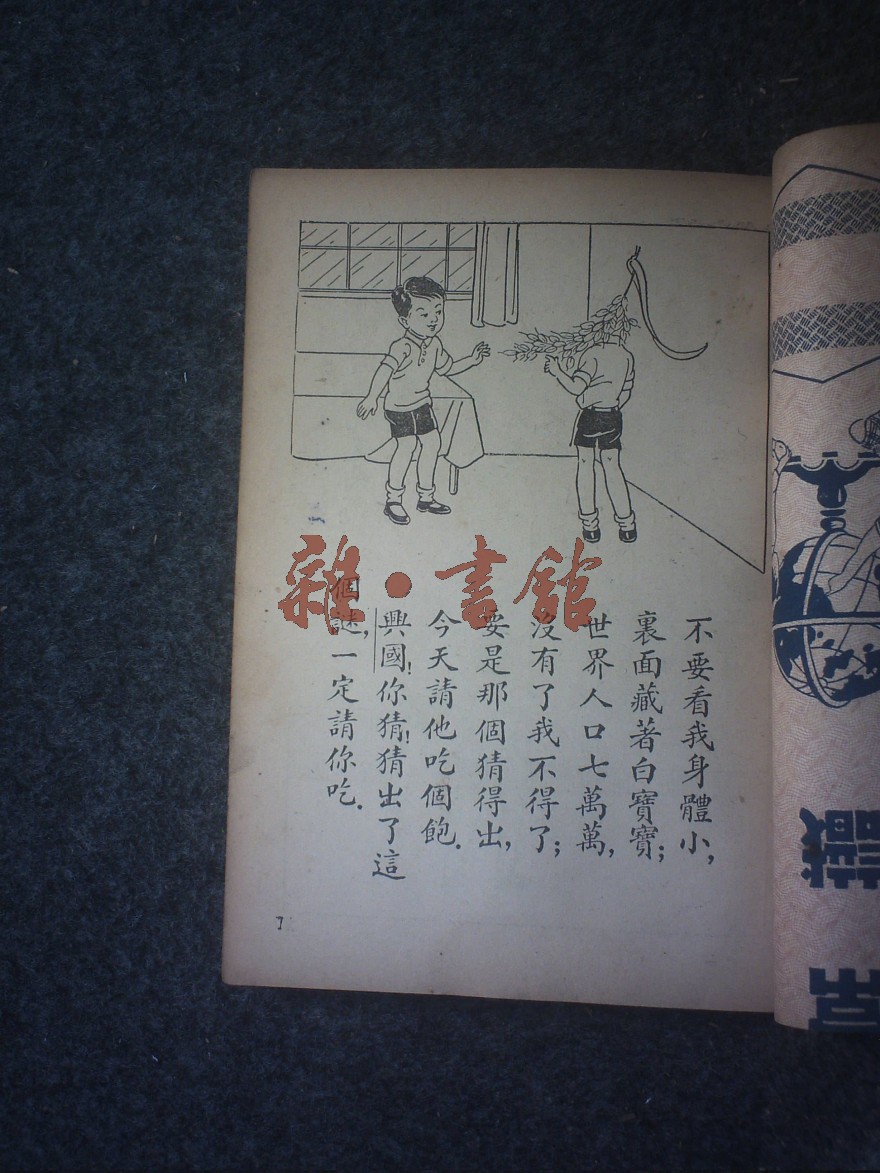 不要看我身體小,
裏面藏著白寶寶;
世界人口七萬萬,
沒有了我不得了;
要是那個猜得出,
今天請他吃個飽.
興國!你猜!猜出了這
個謎,一定請你吃.
雜·書館
識